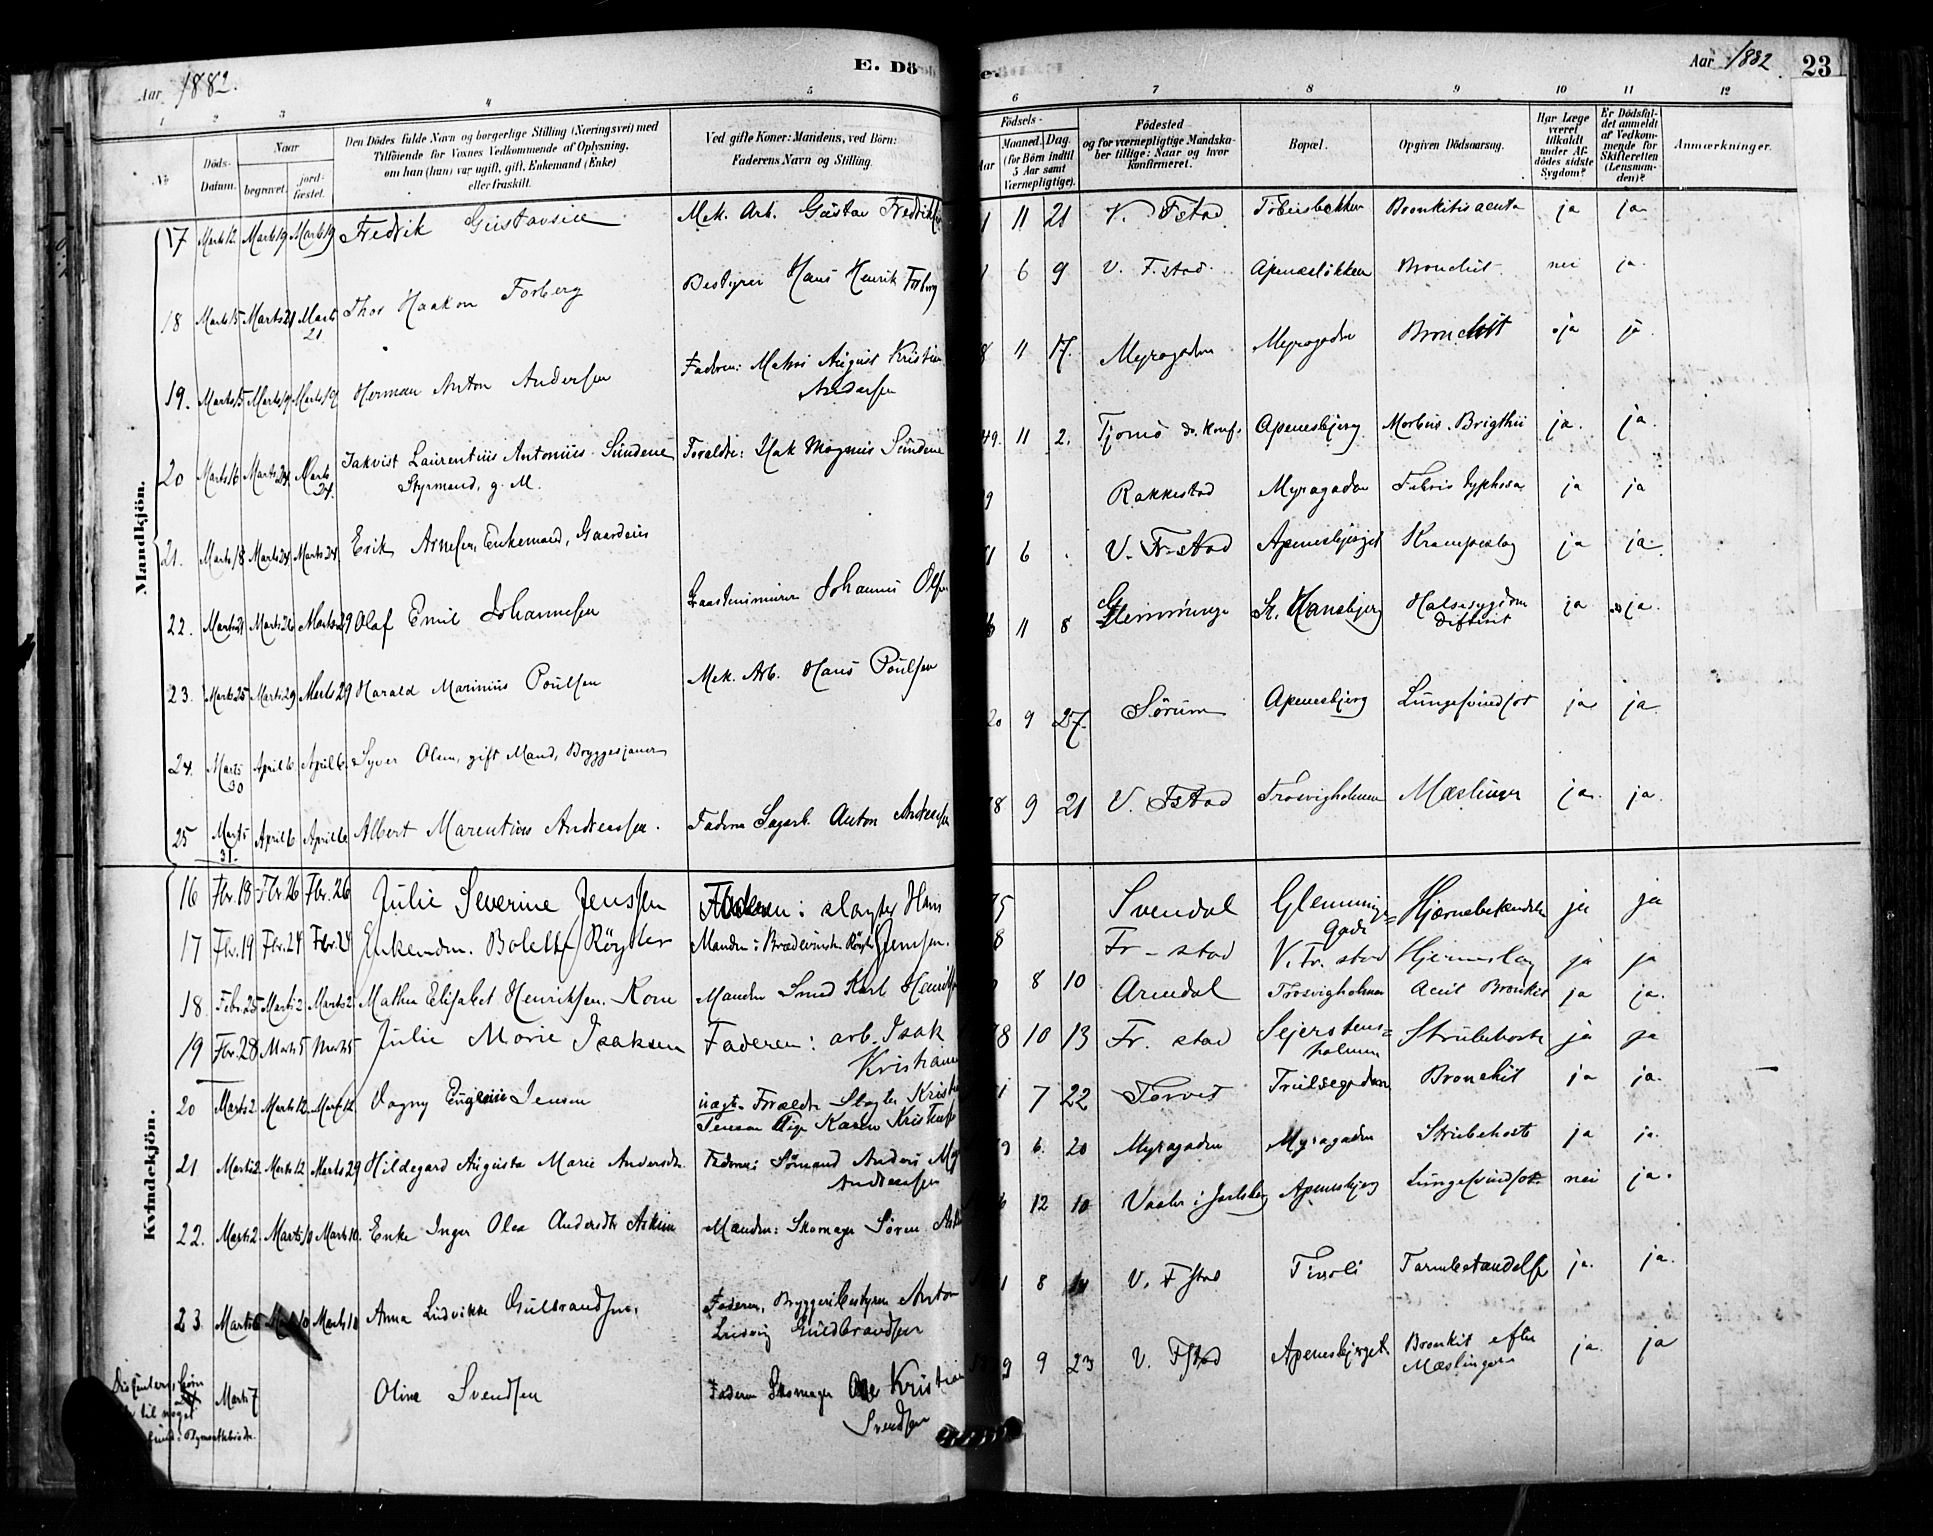 Aar 1882.
E. Dö
1 2 3 4 5
No
Döds-Datum.
Naar
begravet.
jord-fæstet.
Den Dödes fulde Navn og borgerlige Stilling (Næringsvei) med
Tilföiende for Voxnes Vedkommende af Oplysning,
om han (hun) var ugift, gift, Enkemand (Enke)
eller fraskilt.
Ved gifte Koner: Mandens, ved Börn:
Faderens Navn og Stilling.
Mandkjön.
17 Marts 12. Marts 19 Marts 19 Fredrik Gustavsen Mek. Arb. Gustav Fredrik
18 Marts 15 Marts 21 Marts 21. Thor Haakon Forberg Bestyrer Hans Henrik Forberg
19. Marts 15 Marts 19 Marts 19 Herman Anton Andersen Faderen: Matros August Kristian
Andersen
20 Marts 16 Marts 24. Marts 24. Laurentius Antonius Sundene Forældre: Isak Magnus Sundene
Styrmand, g. M.
21. Marts 18 Marts 24 Marts 24. Erik Arnesen, Enkemand, Gaardeier
22. Marts 21 Marts 26 Marts 29 Olaf Emil Johannesen Johannes Olsen
23. Marts 25 Marts 29 Marts 29 Harald Marinius Poulsen Mek. Arb. Hans Poulsen
24. Marts 30 April 6. April 6. Syver Olsen, gift Mand, Bryggesjauer
25 Marts 31. April 6 April 6 Albert Marentius Andreassen. Faderen Sagarb. Anton Andreassen
Kvindekjön.
16 Fbr. 18 Fbr. 26 Fbr. 26 Julie Severine Jenssen Faderen: slagter Hans
Jenssen.
17 Fbr. 19 Fbr. 24 Fbr. 24 Enkemdm. Bolette Röyster Manden:
18. Febr. 25 Marts 2 Marts 2 Mathea Elisabet Henriksen. Kone Manden Smed Karl Henriksen
19 Fbr. 28 Marts 5 Marts 5 Julie Marie Isaksen Faderen: arb. Isak
Kristian
20 Marts 2. Marts 12. Marts 12. Vagny Eugenie Jensen uægt. Forældre Slagter Kristian
Jensen Pige Karen
21 Marts 2. Marts 12 Marts 29 Hildegard Augusta Marie Andersdtr. Faderen: Sømand Anders
Andreassen
22. Marts 2. Marts 10 Marts 10. Enke Inger Olea Andersdtr Askim Manden: Skomager Sören
23. Marts 6 Marts 10 Marts 10 Anna Ludvikke Gulbrandsen, Faderen, Bryggeribestyrer Anton
Ludvig Guldbrandsen
Dissenters børn
til noget
Marts 7 Oline Svendsen Faderen Skomager Ole Kristian
Svendsen
e.
Aar 1882.
23
6 7 8 9 10 11 12
Födsels-
Aar
Maaned. Dag.
(for Börn indtil
5 Aar samt
Værnepligtige).
Födested
og for værnepligtige Mandska-
ber tillige: Naar og hvor
konfirmeret.
Bopæl.
Opgiven Dödsaarsag.
Har Læge
været
tilkaldt
under Af-
dödes sidste
Sygdom?
Er Dödsfal-
det anmeldt
af Vedkom-
mende for
Skifteretten
(Lensman-
den)?
Anmærkninger.
1 11 21 V. Fstad Bronkitis acuta ja ja
6 9 V. F.stad. Apenesløkken Bronchit. nei ja.
8 11 17. Myragaden Myragaden Bronchit ja ja
49. 11 2. Tjømø do. konf. Apenesbjerg Morbus Brigthii ja. ja.
9 Rakkestad Myragaden Febris typhosa ja ja
6 V. Fr-stad Apenesbjerget Krampeslag ja ja.
11 8 Glemminge St. Hansbjerg Halssygdom
Difterit ja ja.
20 9 27. Sörum Apenesbjerg Lungesvindsot ja ja.
78 9 21 V. Fstad Trosvigholmen Mæslinger ja. ja.
75 Svendal Glemminge-
Gade Hjærnebetændelse ja ja
8 Fr-stad V. Fr. stad Hjerneslag ja ja
8 10 Arendal Trosvigholmen Acut Bronkit ja ja.
78 10 13 Fr. stad Sejerstens-
holmen Strubehoste ja ja
7 22 Torvet Bronchit ja ja.
9 6. 20 Myragaden Myragaden Strubehoste ja ja.
12 10 Vaaler i Jarlsberg Apenesbjerg Lungesvindsot nei ja.
1 8 V. Fstad Tivoli Tarmbetændelse ja. ja.
9 9 23 V. Fstad Apenesbjerget Bronkit efter
Mæslinger ja. ja